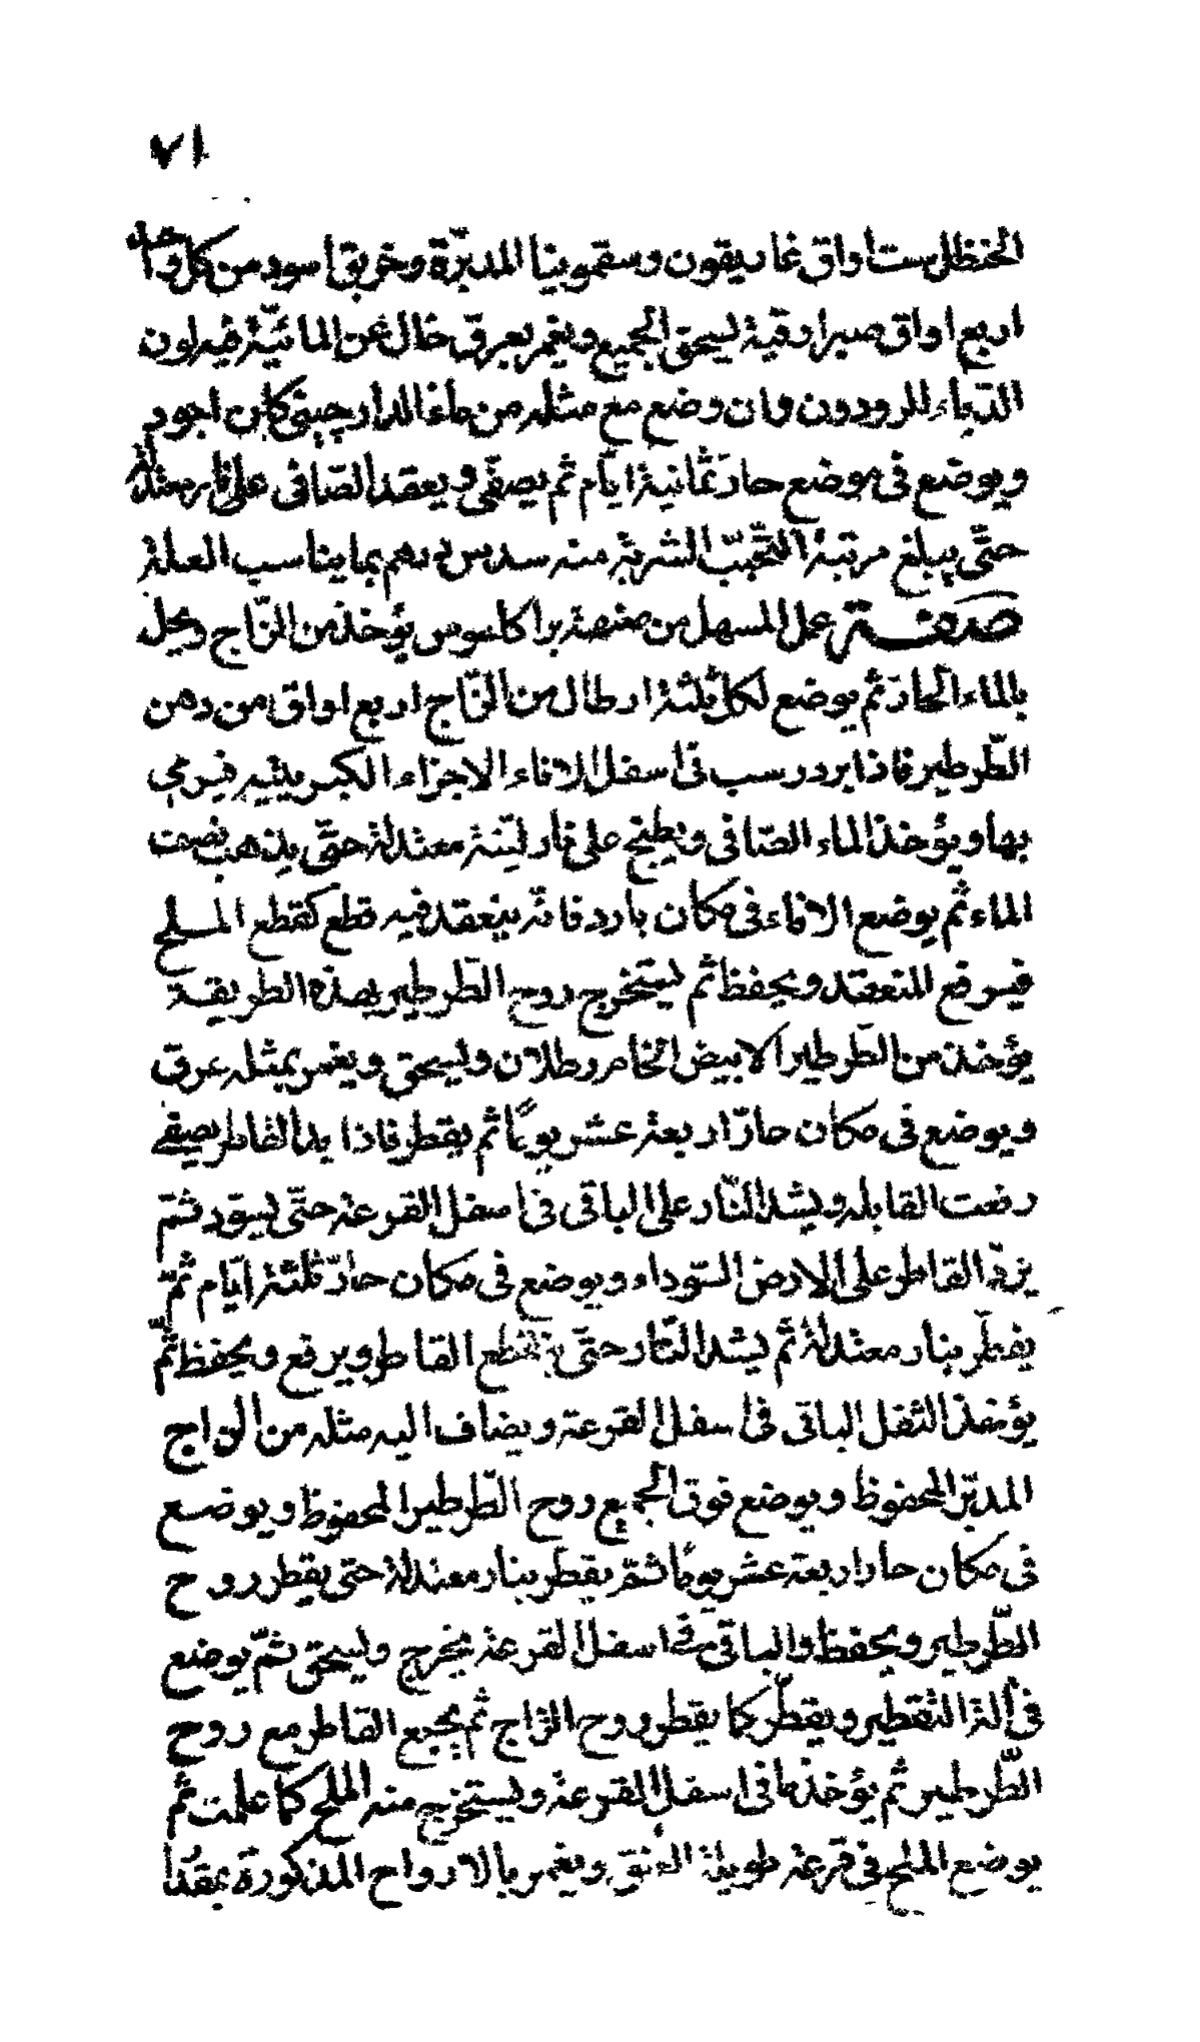 ٧١
الحنظل ست اواق غاريقون وسقمونيا المدبّرة وخربق اسود من كل واحد
اربع اواق صبر اوقية يسحق الجميع ويغمر بعرق خال عن المائيّة غير لون
الدّماء للرودون وان وضع مع مثله من ماء الدارچيني كان اجود
ويوضع فى موضع حارّ ثمانية ايّام ثم يصفّى ويعقد الصّافى على نار معتدلة
حتّى يبلغ مرتبة التّحبّب الشربة منه سدس درهم بما يناسب العلة
صفة عمل المسهل من صنعة براكلسوس يؤخذ من الزّاج ويحل
بالماء الحارّ ثم يوضع لكل ثلثة ارطال من الزّاج اربع اواق من دهن
الطّرطير فاذا برد رسب فى اسفل الاناء الاجزاء الكبريتيه فيرمى
بها ويؤخذ الماء الصّافى ويطبخ على نار ليّنة معتدلة حتّى يذهب نصف
الماء ثم يوضع الاناء فى مكان بارد فانّه ينعقد فيه قطع كقطع الملح
فيرفع المنعقد ويحفظ ثم يستخرج روح الطّرطير بهذه الطريقة
يؤخذ من الطّرطير الابيض الخام رطلان ويسحق ويغمر بمثله عرق
ويوضع فى مكان حارّ اربعة عشر يومًا ثم يقطر فاذا بدا القاطر يصفى
رفعت القابله ويشد النّار على الباقى فى اسفل القرعة حتّى يسوّد ثمّ
يردّ القاطر على الارض السّوداء ويوضع فى مكان حارّ ثلثة ايّام ثمّ
يقطّر بنار معتدلة ثم يشد النّار حتّى ينقطع القاطر ويرفع ويحفظ ثمّ
يؤخذ الثفل الباقى فى اسفل القرعة ويضاف اليه مثله من الزاج
المدبّر المحفوظ ويوضع فوق الجميع روح الطّرطير المحفوظ ويوضع
فى مكان حار اربعة عشر يومًا ثمّ يقطّر بنار معتدلة حتى يقطر روح
الطّرطير ويحفظ والباقى فى اسفل القرعة يخرج ويسحق ثمّ يوضع
فى آلة التقطير ويقطّر كما يقطر روح الزاج ثم يجمع القاطر مع روح
الطّرطير ثم يؤخذ ما فى اسفل القرعة ويستخرج منه الملح كما علمت ثم
يوضع الملح فى قرعة طويلة العنق ويغمر بالارواح المذكورة بمقدار